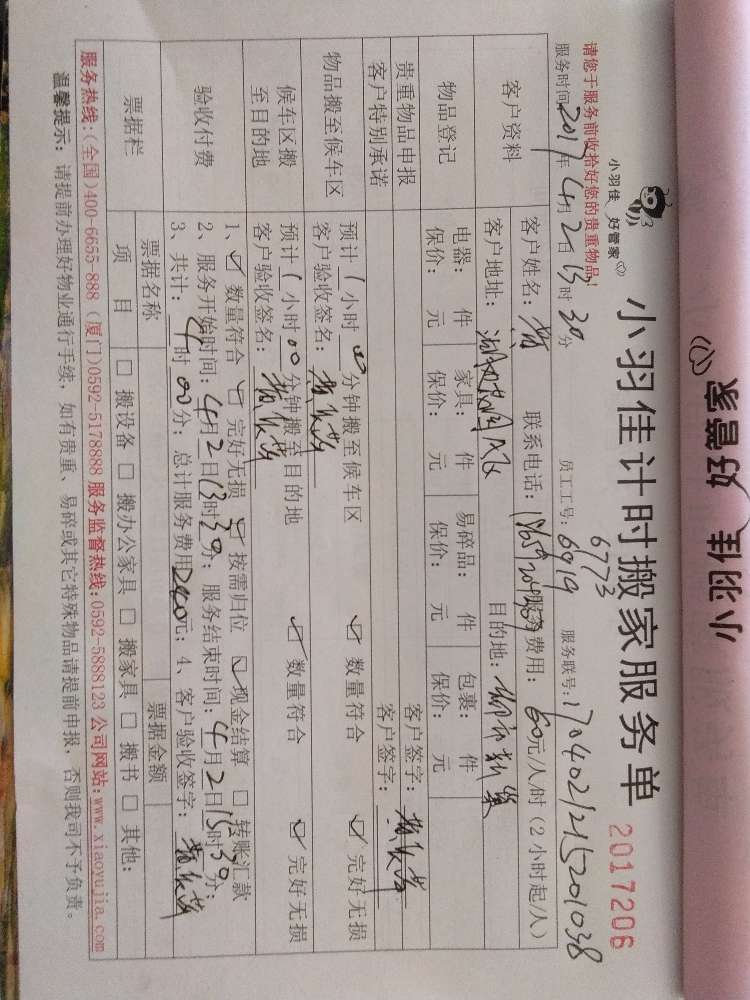 小羽佳 好管家
小羽佳 好管家
小羽佳计时搬家服务单
2017206
请您于服务前收拾好您的贵重物品!
服务时间:2017年4月2日13时30分
员工工号:6919
6773
服务联号:1704021215201038
客户资料
客户姓名:
联系电话:
服务费用:60元/人/时(2小时起/人)
客户地址:
目的地:
物品登记
电器: 件 家具: 件 易碎品: 件 包裹: 件
保价: 元 保价: 元 保价: 元 保价: 元
贵重物品申报
客户签字:
客户特别承诺
客户签字:
物品搬至候车区
预计1小时00分钟搬至候车区 ☑ 数量符合 ☑ 完好无损
客户验收签名:
候车区搬至目的地
预计1小时00分钟搬至目的地 ☑ 数量符合 ☑ 完好无损
客户验收签名:
验收付费
1、☑ 数量符合 ☑ 完好无损 ☑ 按需归位 ☑ 现金结算 □ 转账汇款
2、服务开始时间:4月2日13时30分;服务结束时间:4月2日15时30分;
3、共计:4时00分;总计服务费用240元;4、客户验收签字:
票据栏
票据名称 票据金额
项 目 □ 搬设备 □ 搬办公家具 □ 搬家具 □ 搬书 □ 其他:
服务热线:(全国)400-6655-888 (厦门)0592-5178888 服务监督热线:0592-5888123 公司网站:www.xiaoyujia.com
温馨提示:请提前办理好物业通行手续,如有贵重、易碎或其它特殊物品请提前申报,否则我司不予负责。